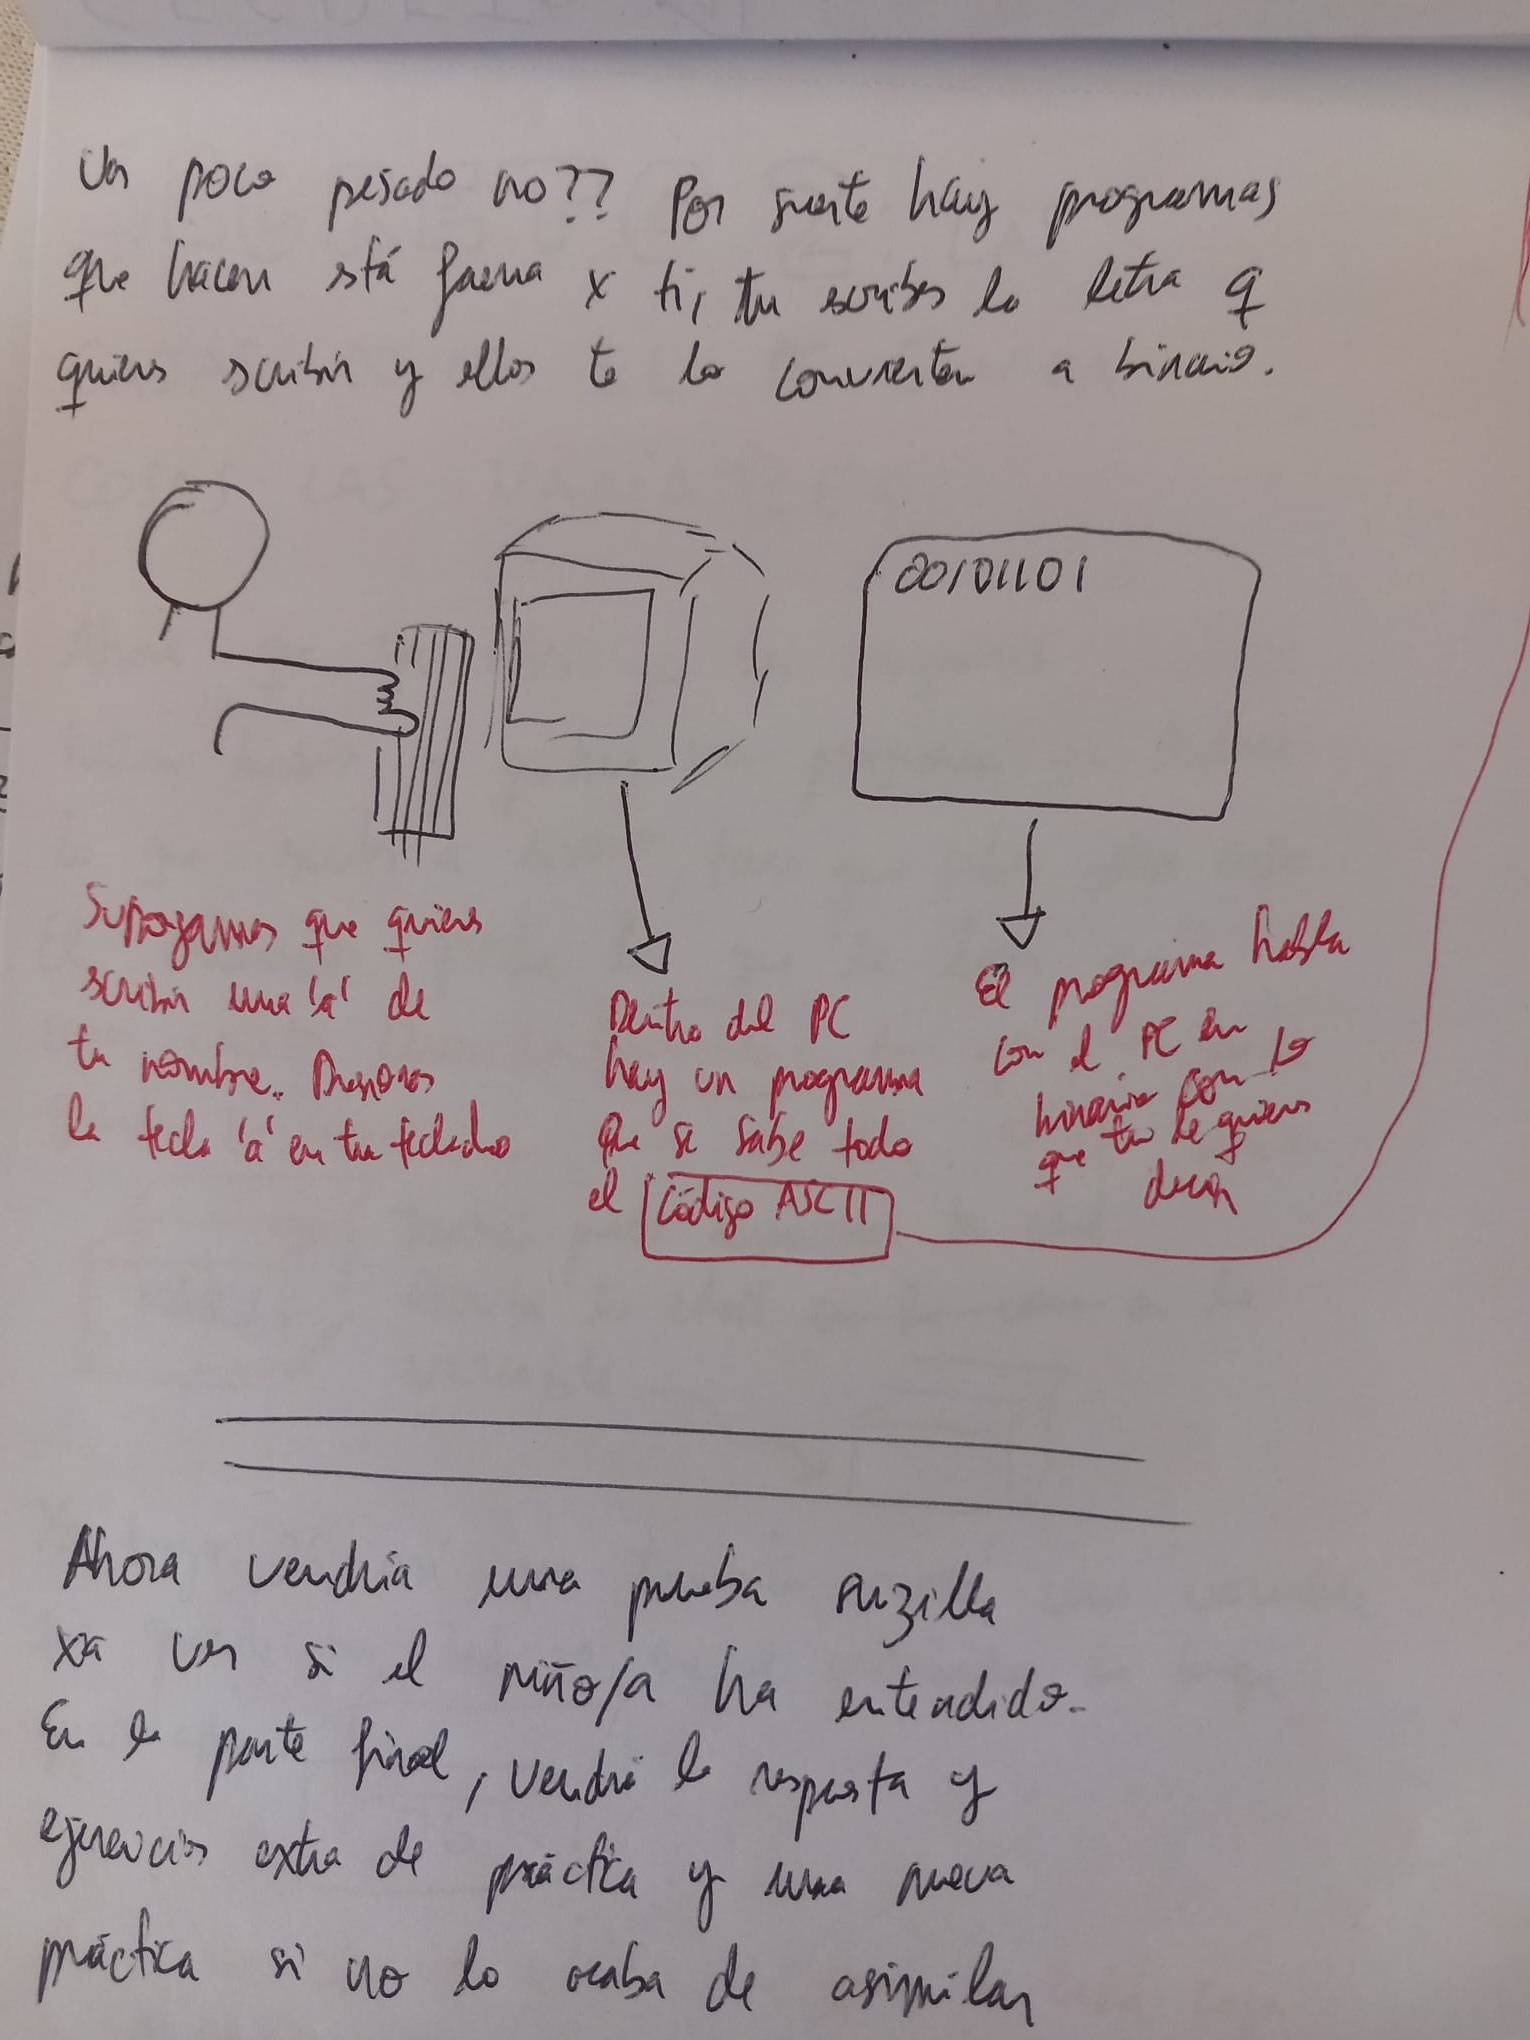 Un poco pesado no?? Por suerte hay programas
que hacen está faena x ti, tu escribes la letra q
quieres scribir y ellos te la convierten a binario.
00101101
Supongamos que quieres
scribir una 'a' de
tu nombre. Presionas
la tecla 'a' en tu teclado
Dentro del PC
hay un programa
que se sabe todo
el Código ASCII
El programa habla
con el PC en
binario con lo
que tu le quieres
decir
Ahora vendria una prueba
xa ver si el niño/a ha entendido.
En la parte final, vendrá la respuesta y
ejercicios extra de práctica y una nueva
práctica si no lo acaba de asimilar